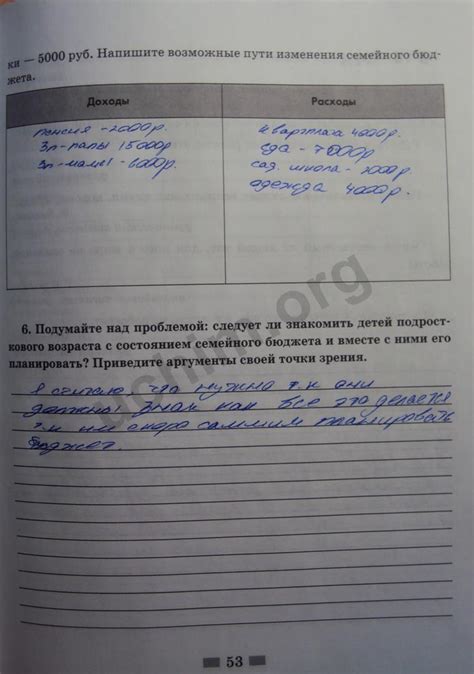 ки — 5000 руб. Напишите возможные пути изменения семейного бюд-
жета.
Доходы
Расходы
пенсия - 2000р.
Зп-папы 15000р
Зп-мамы - 6000р.
квартплата 4000р.
еда - 7000р
сад. школа - 1000р.
одежда 4000р.
6. Подумайте над проблемой: следует ли знакомить детей подрост-
кового возраста с состоянием семейного бюджета и вместе с ними его
планировать? Приведите аргументы своей точки зрения.
Я считаю что нужно т.к они
должны знать как все это делается
т.к им скоро самим планировать
бюджет.
53
Johim.org